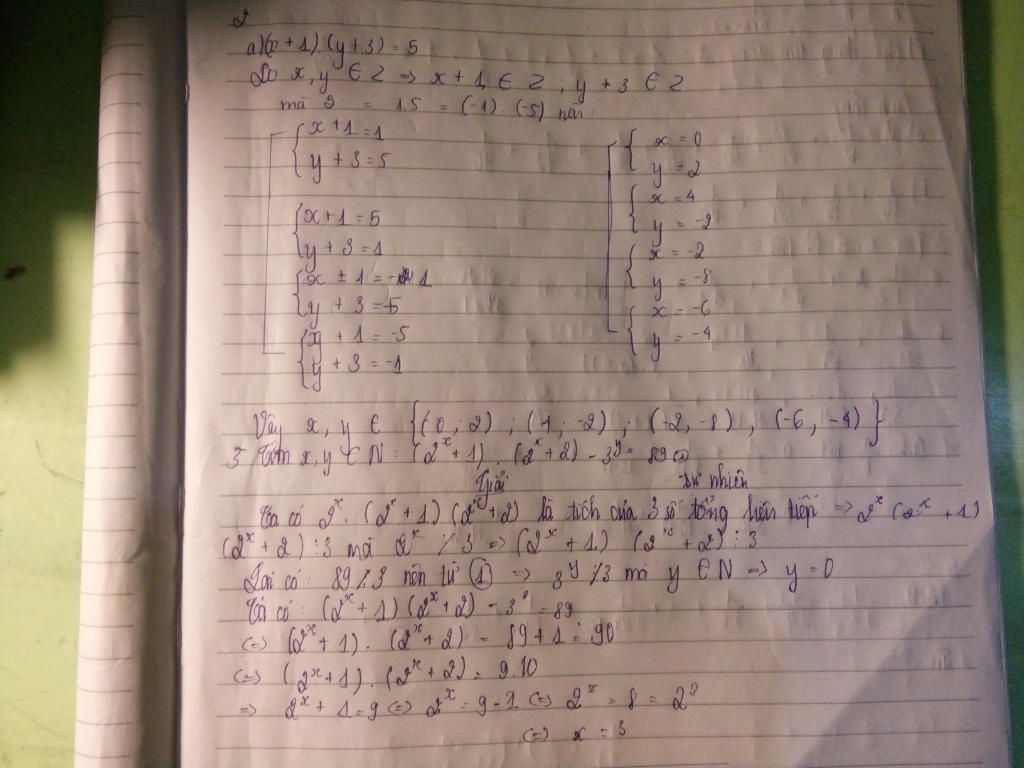 2
a) (x + 1) . (y + 3) = 5
Do x, y ∈ Z ⇒ x + 1 ∈ Z ; y + 3 ∈ Z
mà 5 = 1.5 = (-1) . (-5) nên :
x + 1 = 1
y + 3 = 5
x + 1 = 5
y + 3 = 1
x + 1 = -1
y + 3 = -5
x + 1 = -5
y + 3 = -1
x = 0
y = 2
x = 4
y = -2
x = -2
y = -8
x = -6
y = -4
Vậy x, y ∈ { (0 ; 2) ; (4 ; -2) ; (-2, -8) , (-6, -4) }
3 Tìm x, y ∈ N : (2^x + 1) . (2^x + 2) - 3^y = 89 (1)
Giải
tự nhiên
Ta có 2^x . (2^x + 1) (2^x + 2) là tích của 3 số liên tiếp ⇒ 2^x (2^x + 1)
(2^x + 2) ⋮ 3 mà 2^x ⋮̸ 3 ⇒ (2^x + 1) (2^x + 2) ⋮ 3
Lại có : 89 ⋮̸ 3 nên từ (1) ⇒ 3^y ⋮̸ 3 mà y ∈ N ⇒ y = 0
Ta có : (2^x + 1) (2^x + 2) - 3^0 = 89
(=) (2^x + 1) . (2^x + 2) = 89 + 1 = 90
(=) (2^x + 1) . (2^x + 2) = 9.10
⇒ 2^x + 1 = 9 (=) 2^x = 9 - 1 (=) 2^x = 8 = 2^3
(=) x = 3